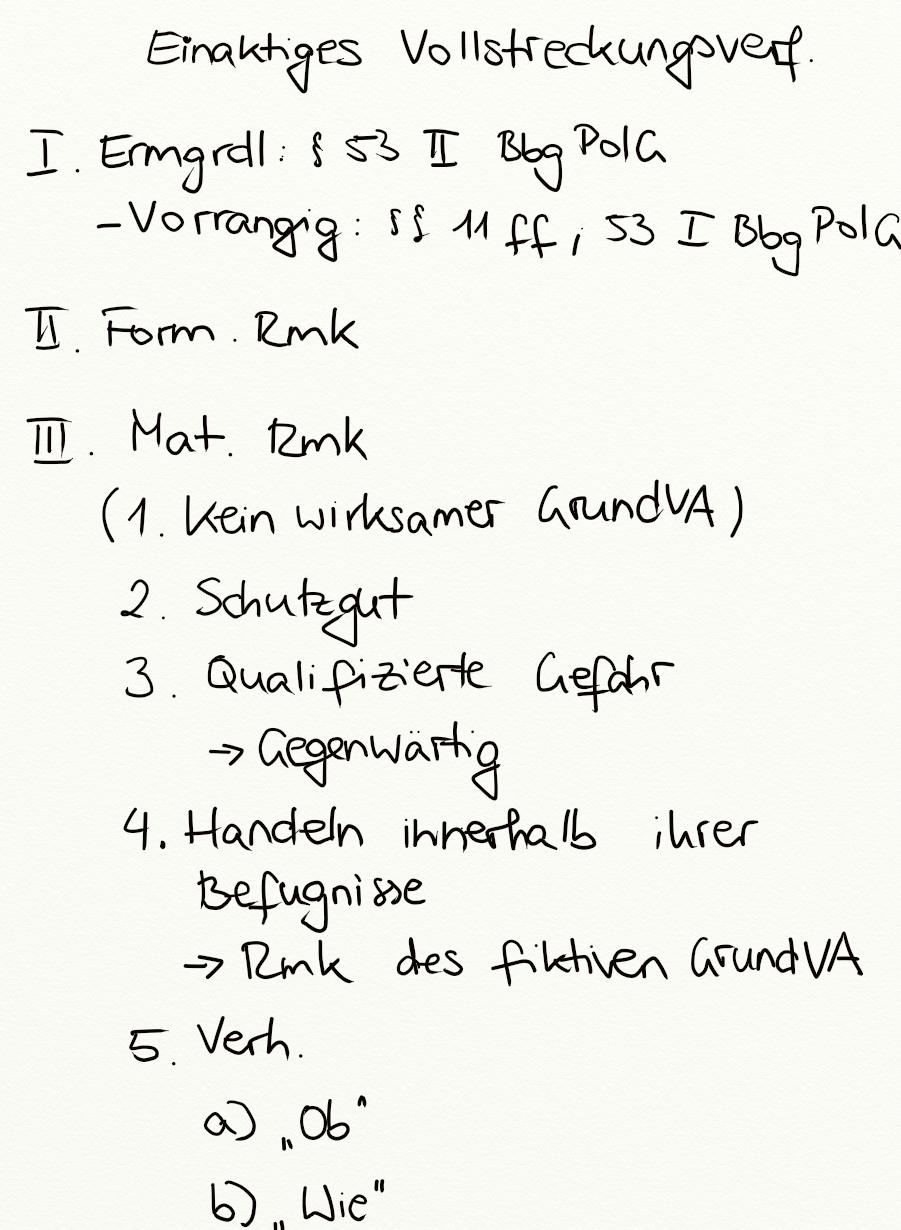 Einaktiges Vollstreckungsverf.
I. Ermgrdl: § 53 II BbgPolG
- Vorrangig: §§ 11 ff, 53 I BbgPolG
II. Form. Rmk
III. Mat. Rmk
(1. Kein wirksamer GrundVA)
2. Schutzgut
3. Qualifizierte Gefahr
→ Gegenwärtig
4. Handeln innerhalb ihrer
Befugnisse
→ Rmk des fiktiven GrundVA
5. Verh.
a) „Ob“
b) „Wie"